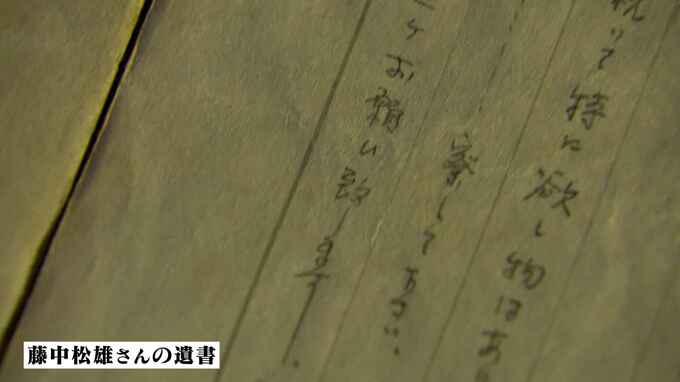 特に欲し物はあ
察して下さい、
ケお願い致します。
藤中松雄さんの遺書